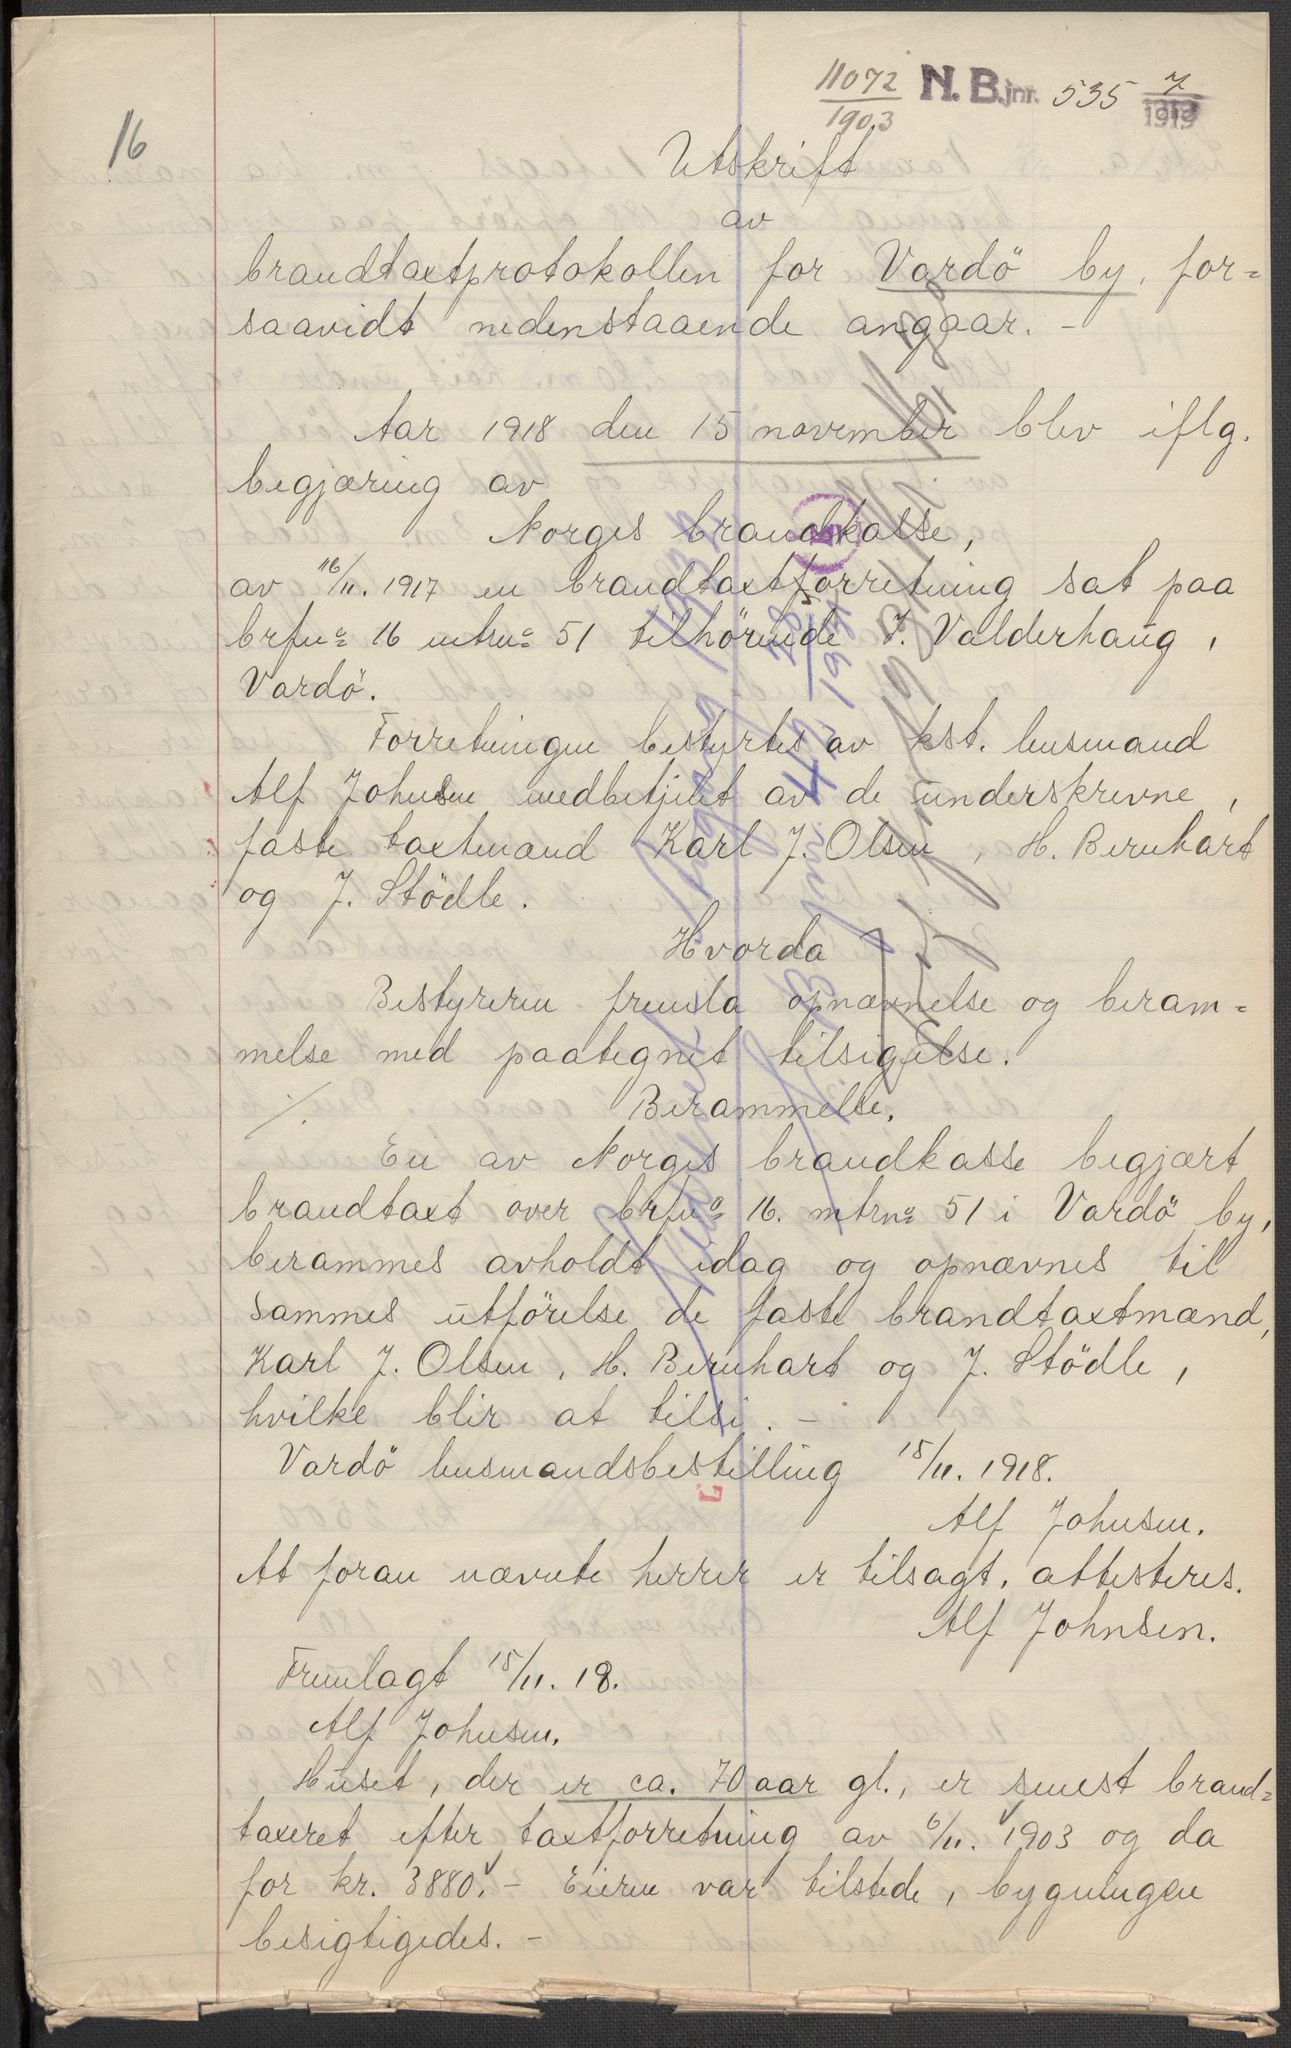 16
11072
1903
N.B.jnr. 535 7/1919
Utskrift
av
brandtaxtprotokollen for Vardö by, for=
saavidt nedenstaaende angaar. -
Aar 1918 den 15 november blev iflg.
begjæring av
Norges brandkasse,
av 16/11. 1917 en brandtaxtforretning sat paa
brfno 16 mtrno 51 tilhörende J. Valderhaug,
Vardö.
Forretningen bestyrtes av kst. lensmand
Alf Johnsen medbetjent av de underskrevne,
faste taxtmænd Karl J. Olsen, H. Bernhart
og J. Stödle.
Hvorda
Bestyreren fremla opnævnelse og beram=
melse med paategnet tilsigelse.
./. Berammelse.
En av Norges brandkasse begjært
brandtaxt over brfno 16. mtrno 51 i Vardö by,
berammes avholdt idag og opnævnes til
sammes utförelse de faste brandtaxtmænd,
Karl J. Olsen, H. Bernhart og J. Stödle,
hvilke blir at tilsi. -
Vardö lensmandsbestilling 15/11. 1918.
Alf Johnsen.
At foran nævnte herrer er tilsagt, attesteres.
Alf Johnsen.
Fremlagt 15/11. 18.
Alf Johnsen.
Huset, der er ca. 70 aar gl., er senest brand=
taxeret efter taxtforretning av 6/11. 1903 og da
for kr. 3880. - Eieren var tilstede, bygningen
besigtigedes. -